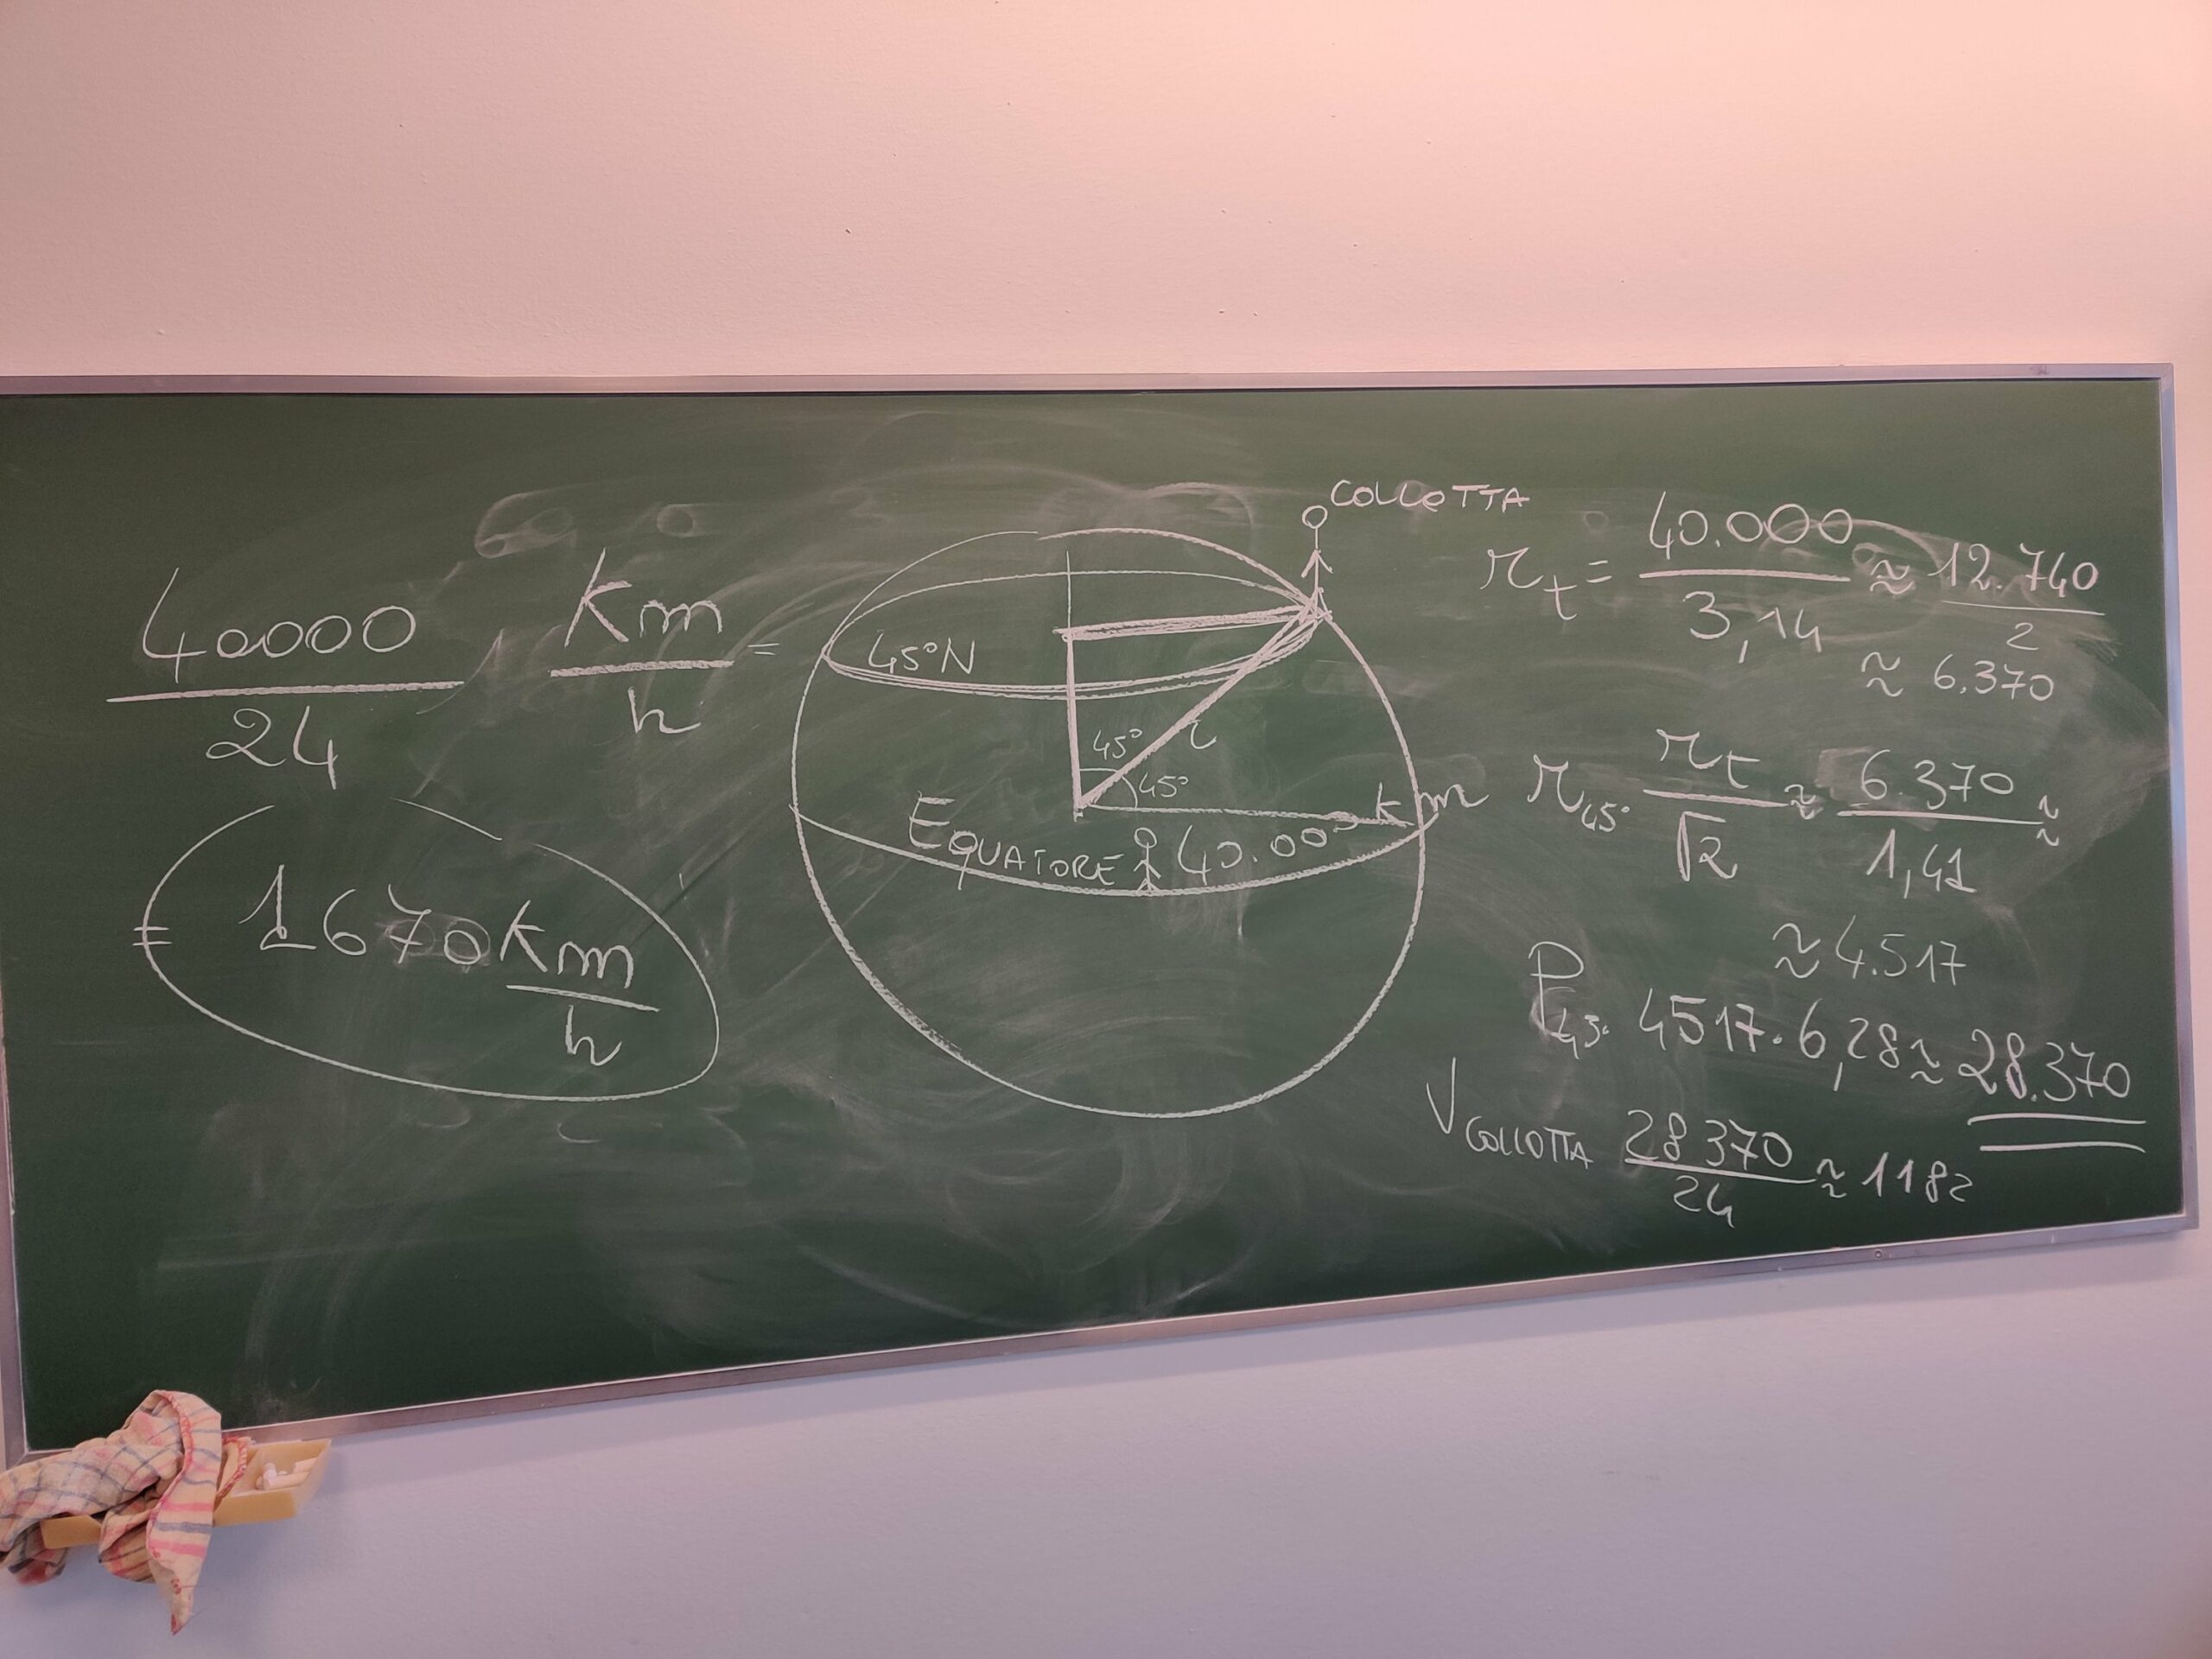 40000 / 24 Km / h =
= 1670 Km / h
COLLOTTA
45°N
45° r
45°
EQUATORE 40.000 km
r_t = 40.000 / 3,14 ≈ 12.740 / 2
≈ 6.370
r_45° r_t / √2 ≈ 6.370 / 1,41 ≈
≈ 4.517
P_45° 4517 · 6,28 ≈ 28.370
V_COLLOTTA 28370 / 24 ≈ 1182